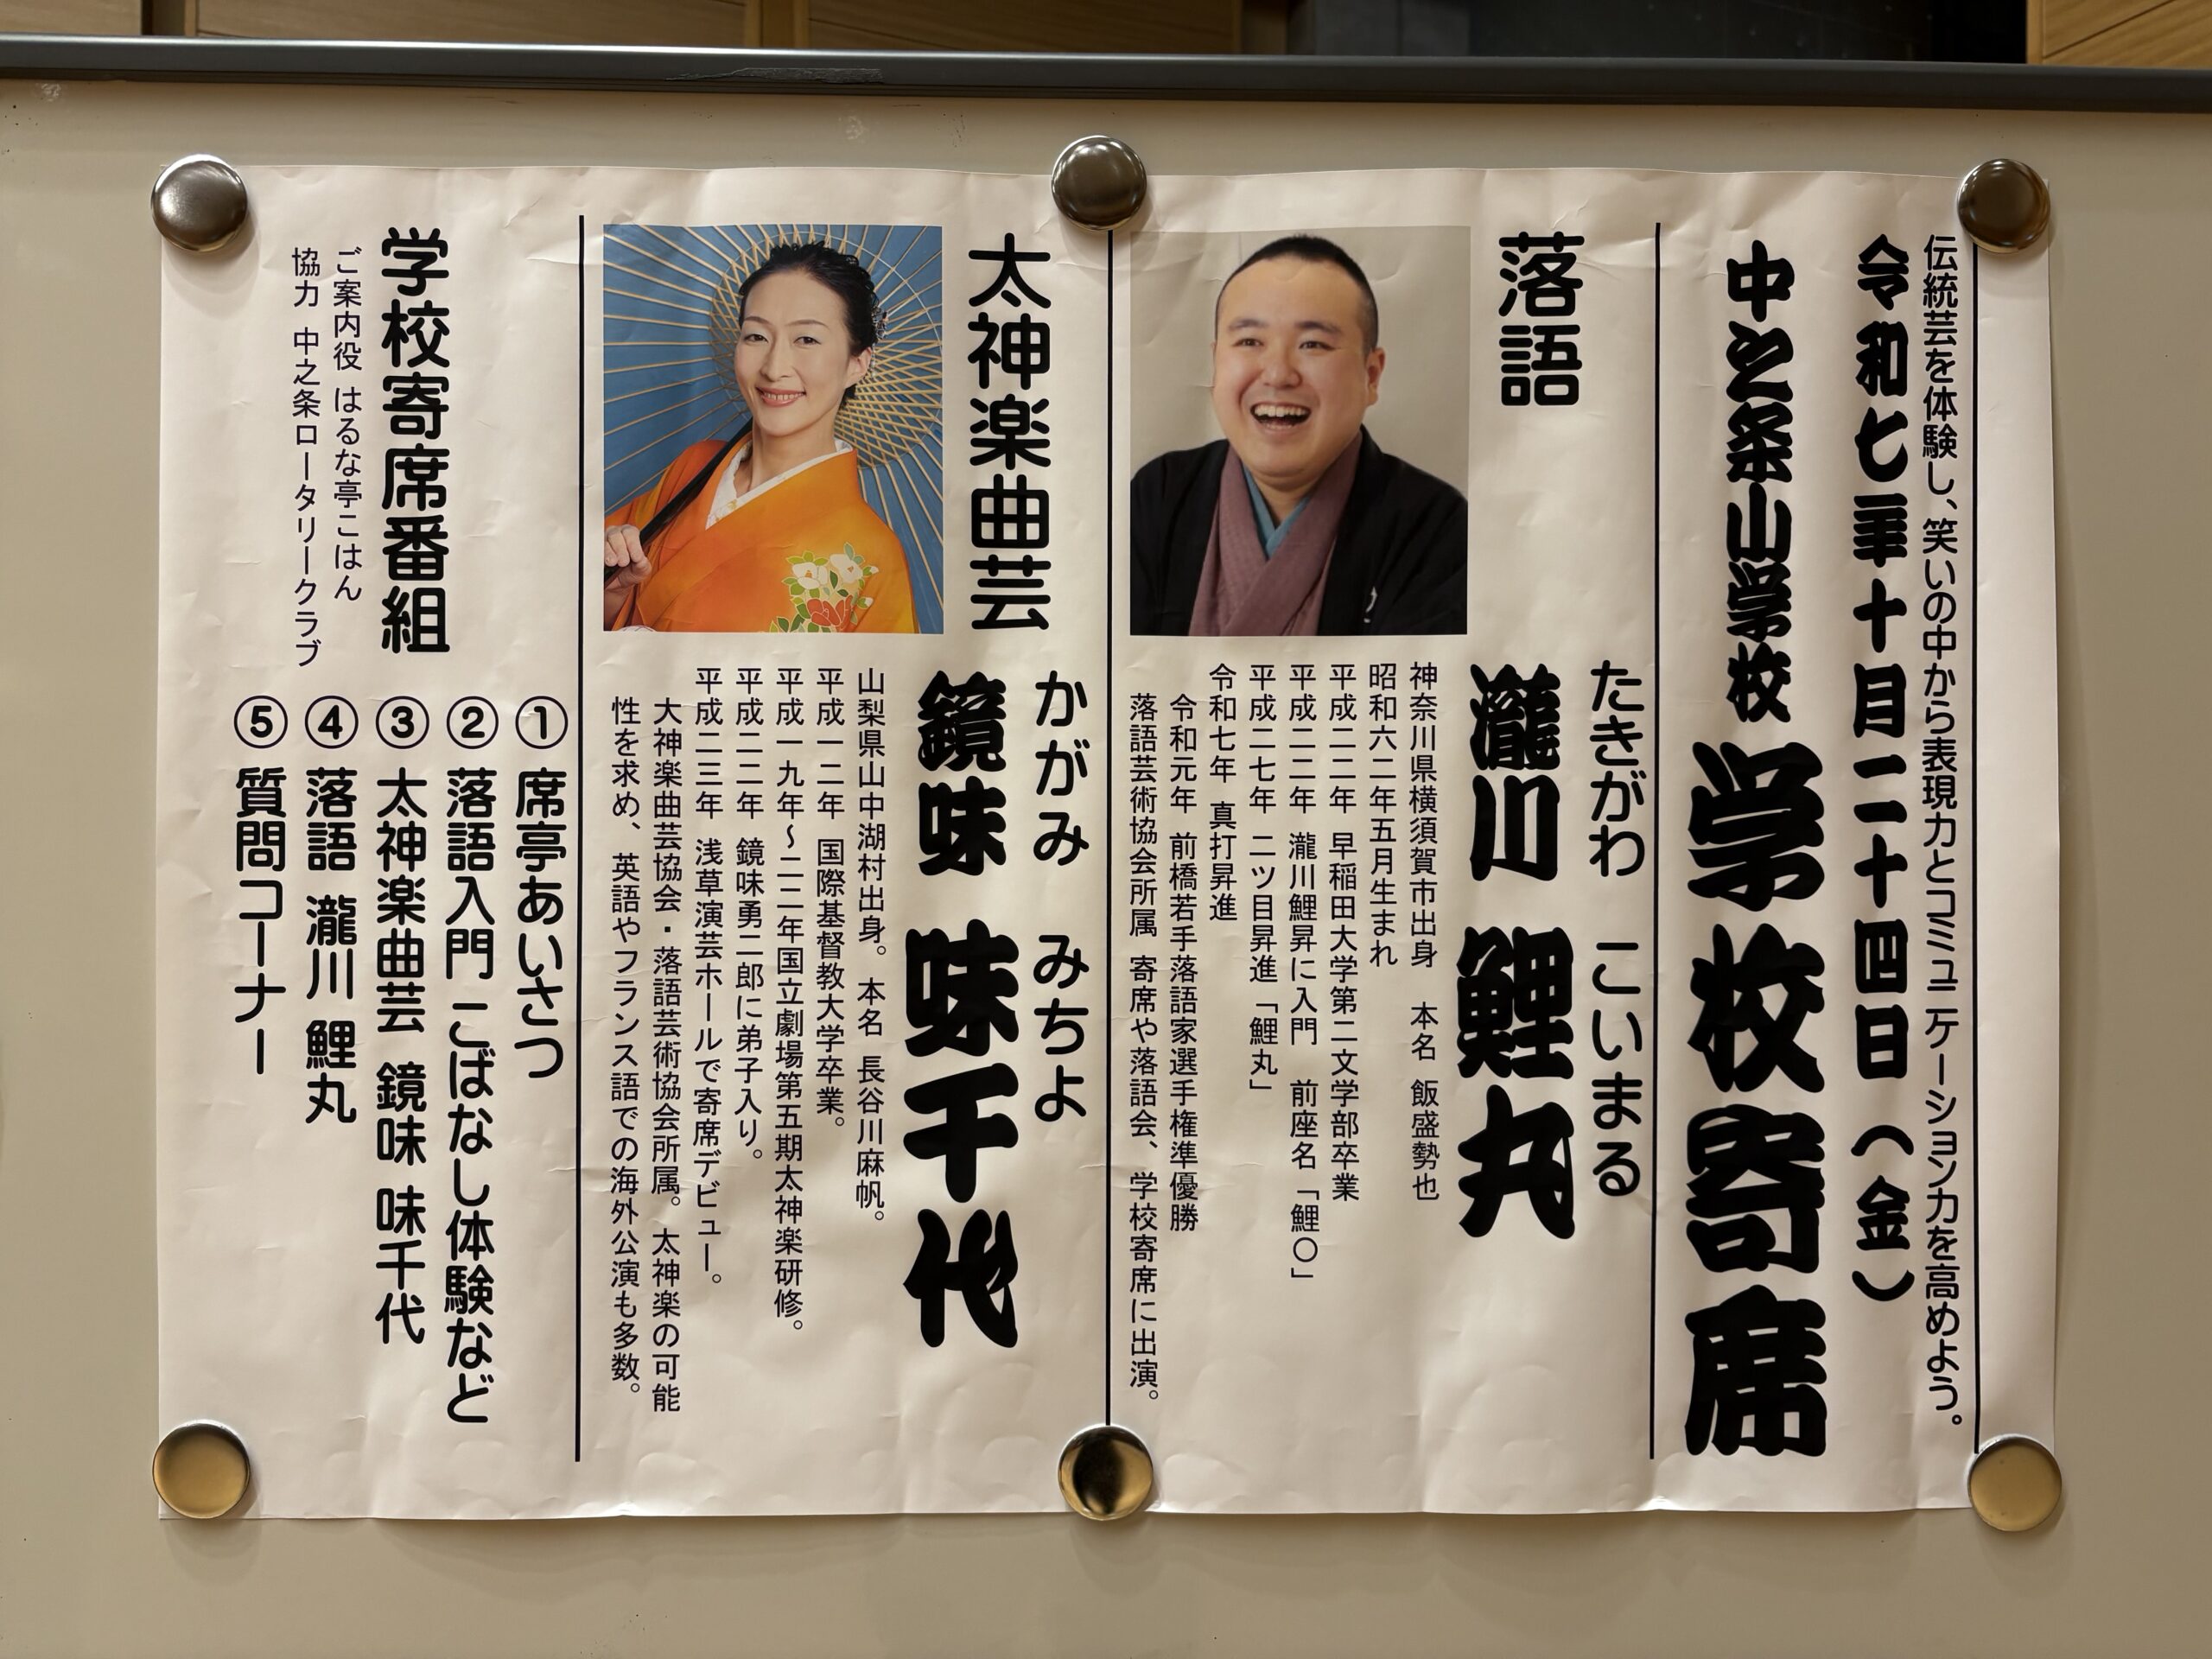 伝統芸を体験し、笑いの中から表現力とコミュニケーション力を高めよう。
令和七年十月二十四日（金）
中之条山学校 学校寄席
落語
たきがわ こいまる
瀧川 鯉丸
神奈川県横須賀市出身 本名 飯盛勢也
昭和六二年五月生まれ
平成二二年 早稲田大学第二文学部卒業
平成二二年 瀧川鯉昇に入門 前座名「鯉〇」
平成二七年 二ツ目昇進「鯉丸」
令和七年 真打昇進
令和元年 前橋若手落語家選手権準優勝
落語芸術協会所属 寄席や落語会、学校寄席に出演。
太神楽曲芸
かがみ みちよ
鏡味 味千代
山梨県山中湖村出身。本名 長谷川麻帆。
平成一二年 国際基督教大学卒業。
平成一九年〜二二年国立劇場第五期太神楽研修。
平成二二年 鏡味勇二郎に弟子入り。
平成二三年 浅草演芸ホールで寄席デビュー。
大神楽曲芸協会・落語芸術協会所属。太神楽の可能
性を求め、英語やフランス語での海外公演も多数。
学校寄席番組
ご案内役 はるな亭こはん
協力 中之条ロータリークラブ
① 席亭あいさつ
② 落語入門 こばなし体験など
③ 太神楽曲芸 鏡味 味千代
④ 落語 瀧川 鯉丸
⑤ 質問コーナー